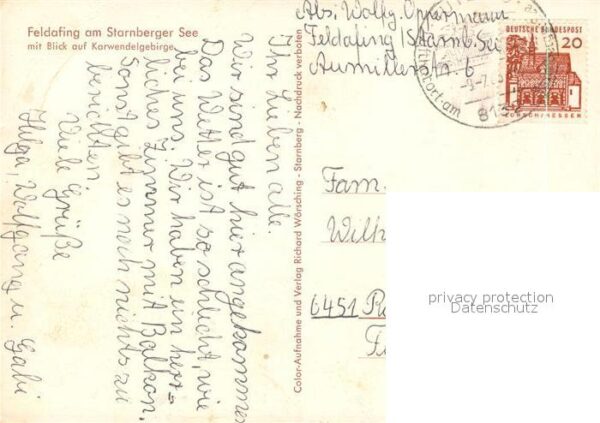 Feldafing am Starnberger See
mit Blick auf Karwendelgebirge
Ihr Lieben alle.
Wir sind gut hier angekommen
Das Wetter ist so schlecht, wie
bei uns. Wir haben ein herr=
liches Zimmer mit Balkon.
Sonst gibt es noch nichts zu
berichten.
Viele Grüße
Helga, Wolfgang u. Gabi
Color-Aufnahme und Verlag Richard Wörsching - Starnberg - Nachdruck verboten
Abs. Wolfg. Oppermann
Feldafing / Starnb. See
6
DEUTSCHE BUNDESPOST
20
LORSCH/HESSEN
813
Fam.
6451
privacy protection
Datenschutz